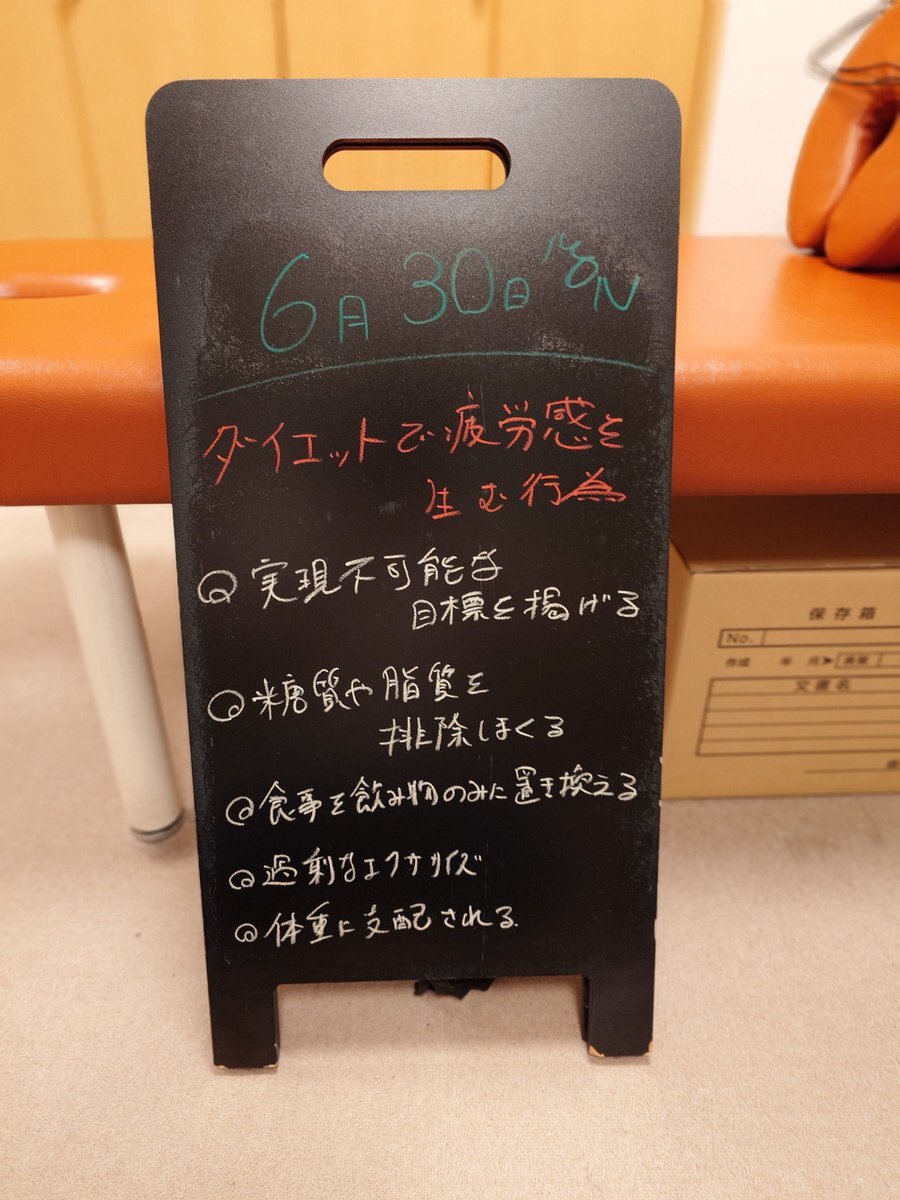 6月30日 MoN
ダイエットで疲労感を
生む行為
◎実現不可能な
目標を掲げる
◎糖質や脂質を
排除しまくる
◎食事を飲み物のみに置き換える
◎過剰なエクササイズ
◎体重に支配される
保存箱
No.
作成 年 月
文書名